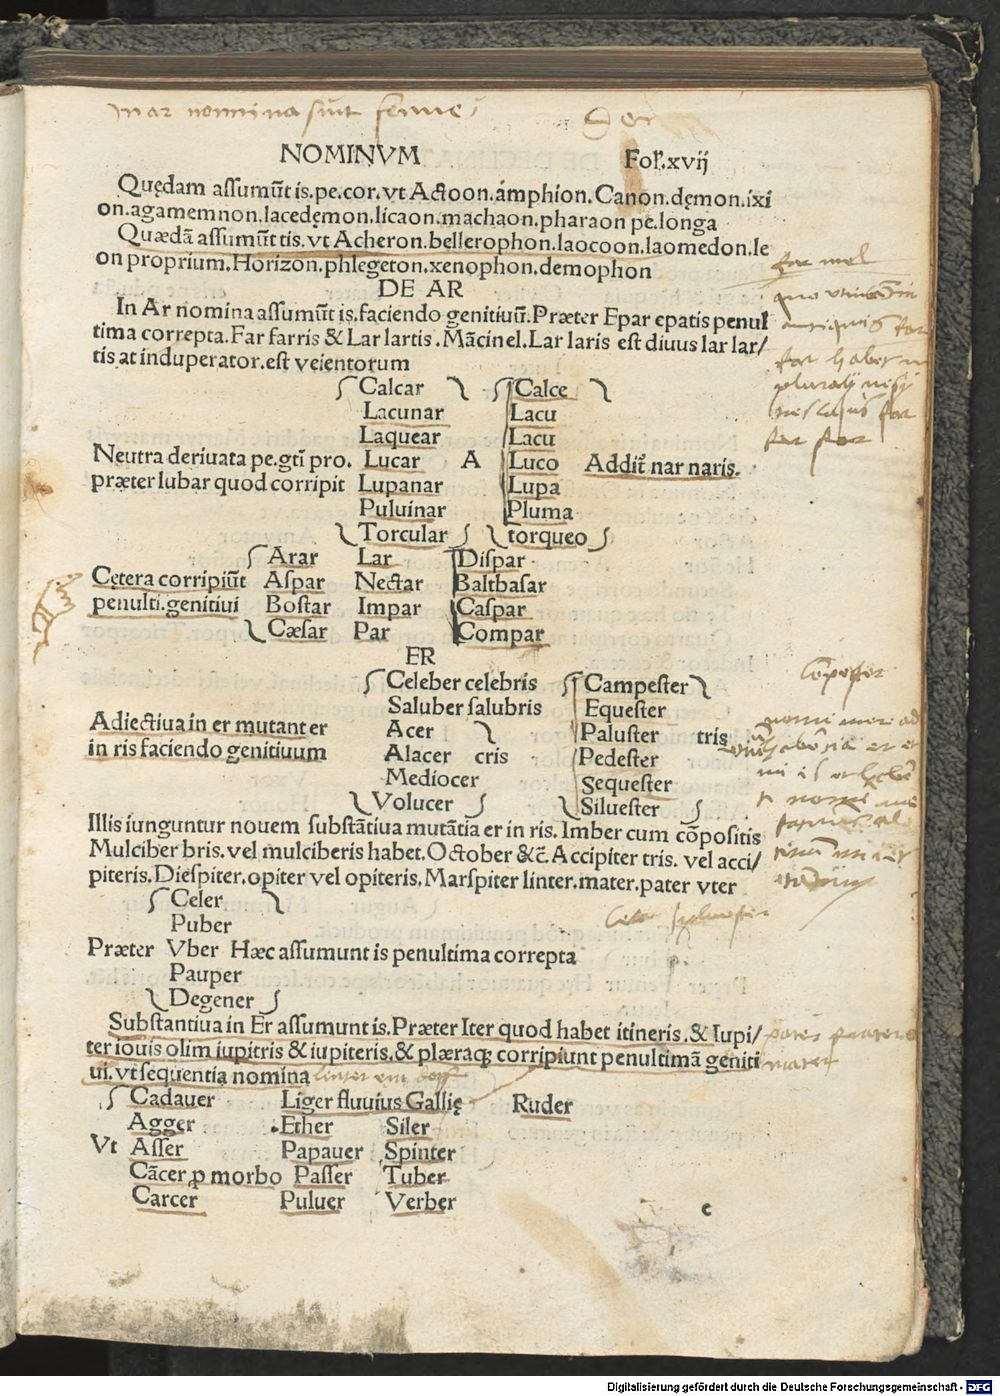 nar nomina sunt
NOMINVM Fol.xvij
Quędam assumūt is.pe.cor.vt Actoon.amphion.Canon.dęmon.ixi
on.agamemnon.lacedęmon.licaon.machaon.pharaon pe.longa
Quædā assumūt tis.vt Acheron.bellerophon.laocoon.laomedon.le
on proprium.Horizon.phlegeton.xenophon.demophon
DE AR
In Ar nomina assumūt is.faciendo genitiuū.Præter Epar epatis penul
tima correpta.Far farris & Lar lartis.Mācinel.Lar laris est diuus lar lar/
tis at induperator.est veientorum
Calcar Calce
Lacunar Lacu
Laquear Lacu
Neutra deriuata pe.gtī pro. Lucar A Luco Addit̄ nar naris.
præter lubar quod corripit Lupanar Lupa
Puluinar Pluma
Torcular torqueo
Arar Lar Dispar
Cętera corripiūt Aspar Nectar Baltbasar
penulti.genitiui Bostar Impar Caspar
Cæsar Par Compar
ER
Celeber celebris Campester
Saluber salubris Equester
Adiectiua in er mutant er Acer Paluster tris
in ris faciendo genitiuum Alacer cris Pedester
Mediocer Sequester
Volucer Siluester
Illis iunguntur nouem substātiua mutātia er in ris. Imber cum cōpositis
Mulciber bris. vel mulciberis habet. October &c̄. Accipiter tris. vel acci/
piteris. Diespiter. opiter vel opiteris. Marspiter linter. mater. pater vter
Celer
Puber
Præter Vber Hæc assumunt is penultima correpta
Pauper
Degener
Substantiua in Er assumunt is. Præter Iter quod habet itineris. & Iupi/
ter iouis olim iupitris & iupiteris. & plæraqꝫ corripiunt penultimā geniti
ui. vt sequentia nomina
Cadauer Liger fluuius Gallię Ruder
Agger Ether Siler
Vt Asser Papauer Spinter
Cācer ꝓ morbo Passer Tuber
Carcer Puluer Verber
c
far mel
far habet
far far
Composter
pater
mater
Digitalisierung gefördert durch die Deutsche Forschungsgemeinschaft - DFG